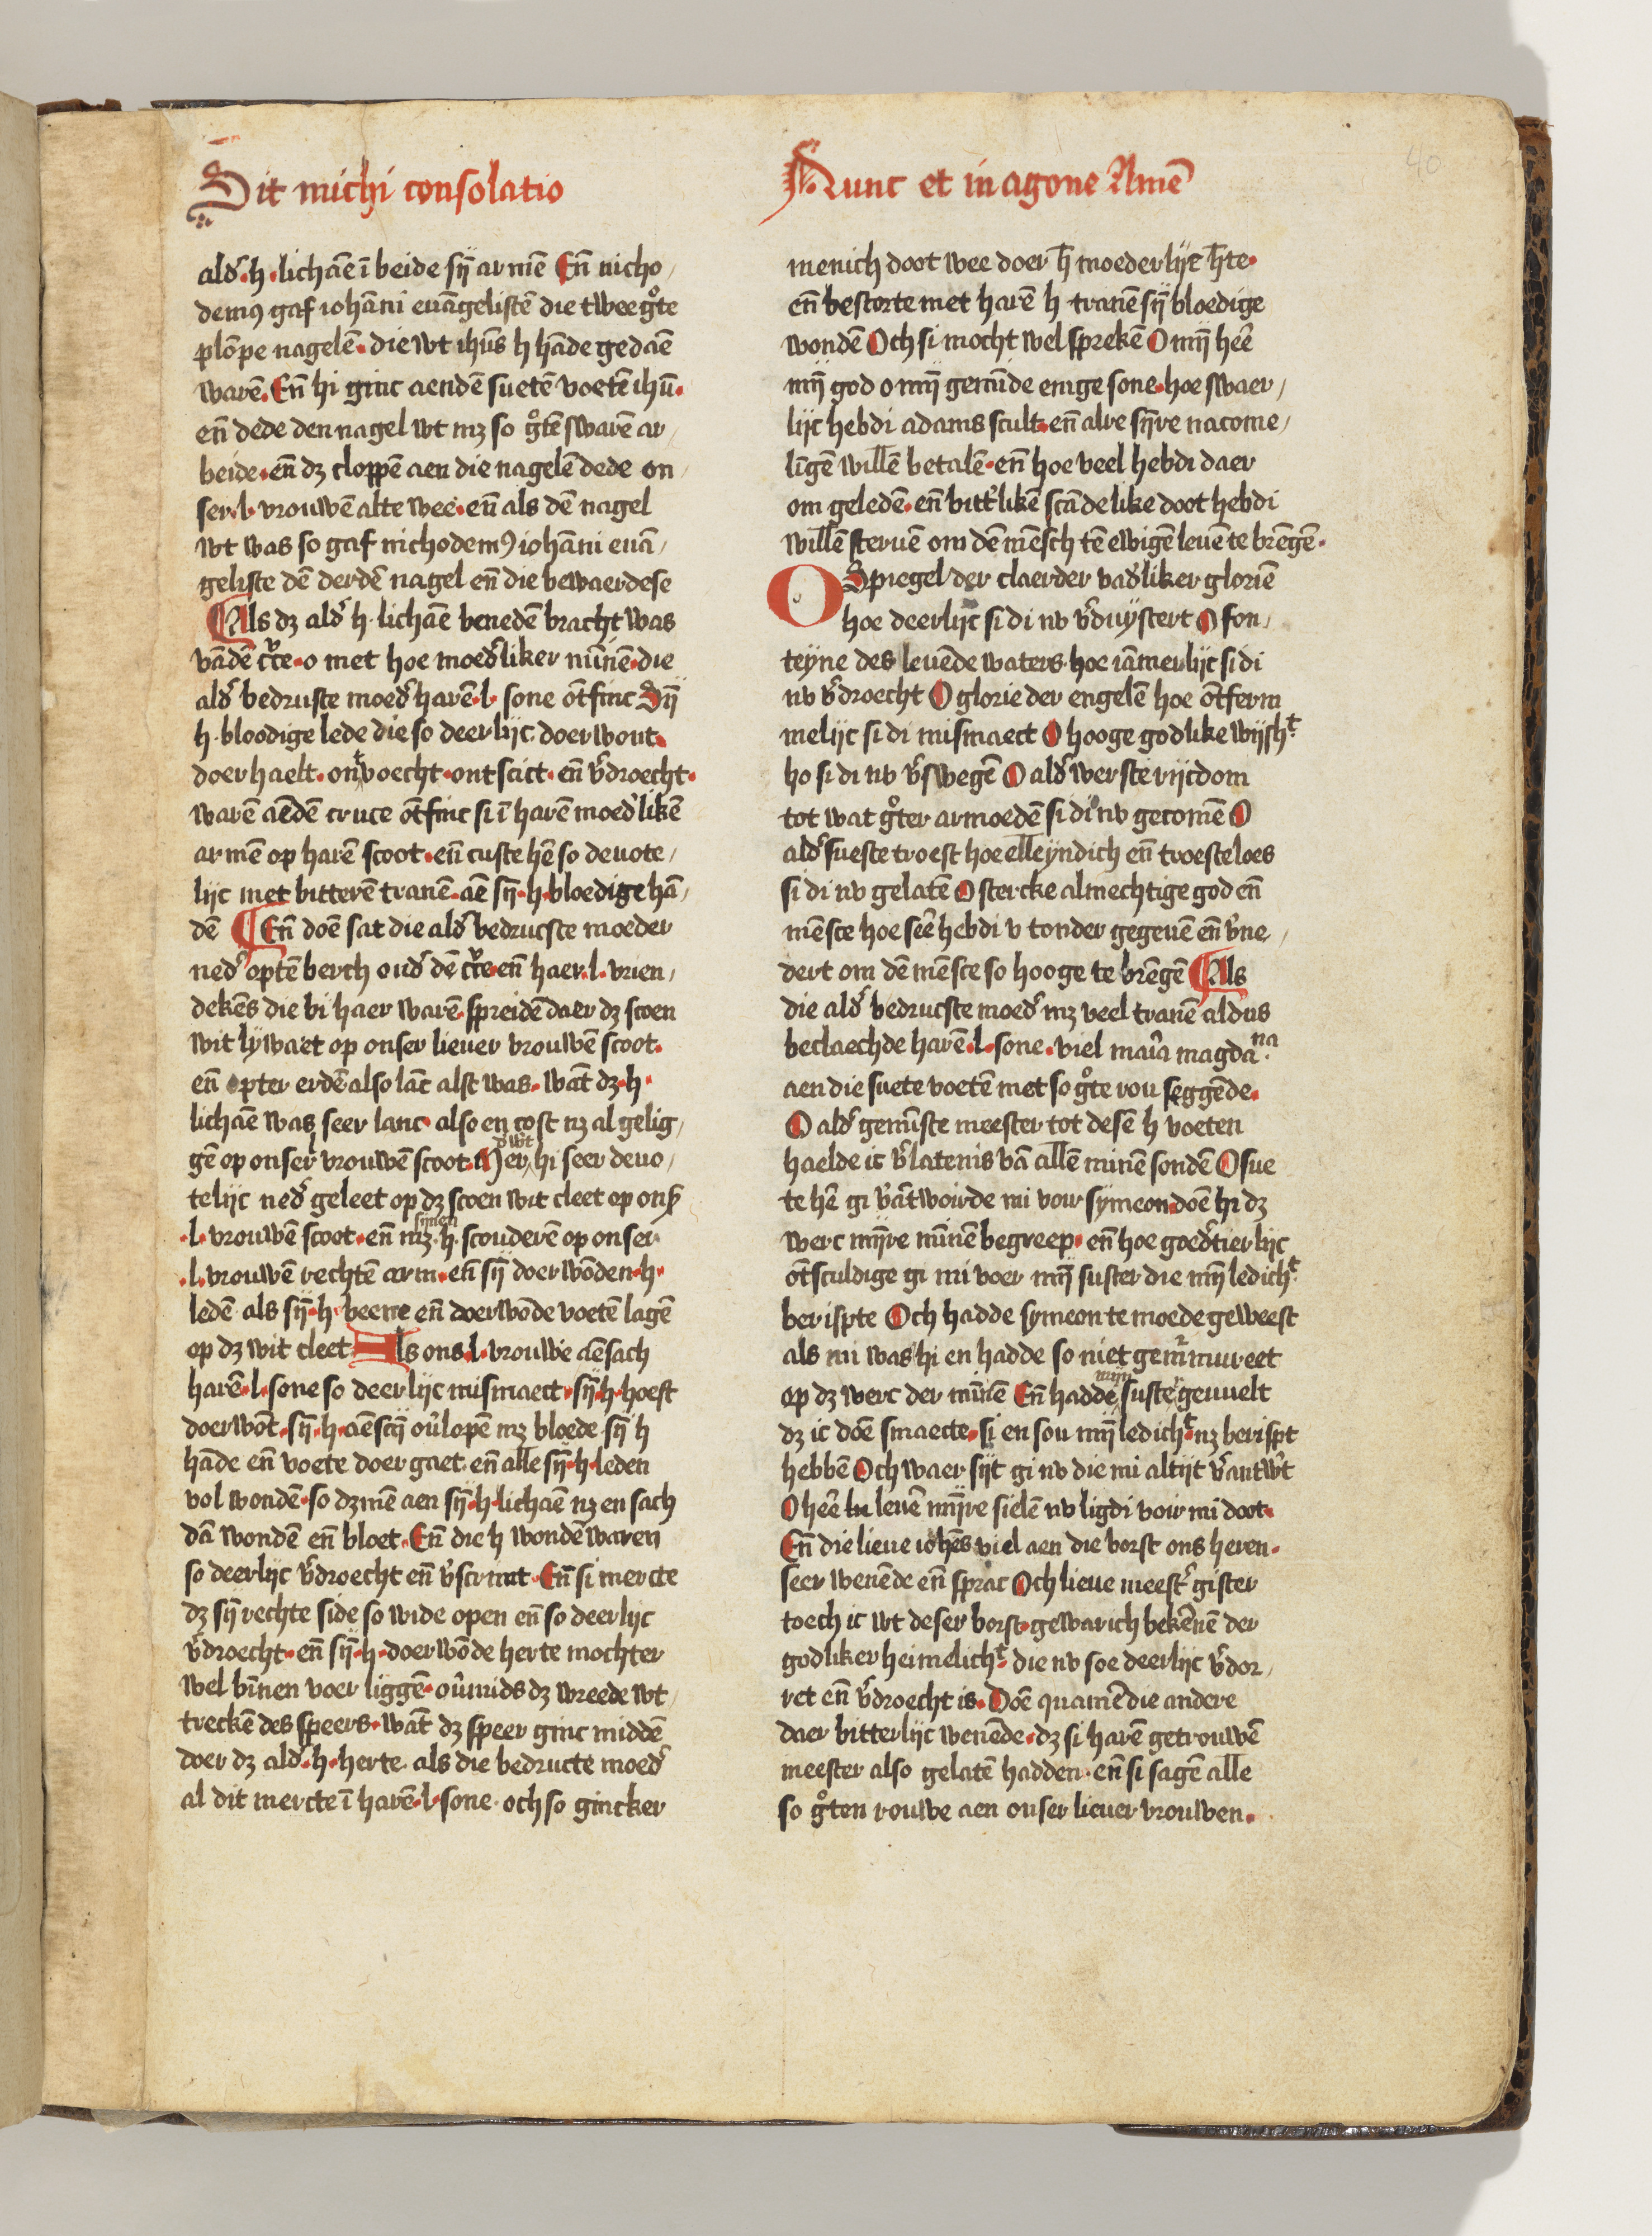 Sit michi consolatio
alđ·h·lichāe ī beide sȳ armē Eñ nicho/
demꝰ gaf iohāni euāgelistē die twee gͦte
plōpe nagelē· die wt ihūs h hāde gedaē
warē· Eñ hi ginc aendē suetē voetē ihū·
eñ dede den nagel wt mʒ so gͦtē swarē ar/
beide·eñ dʒ cloppē aen die nagelē dede on/
ser·l·vrouwē alte wee·eñ als dē nagel
wt was so gaf nichodemꝰ iohāni euā/
geliste dē derdē nagel eñ die bewaerdese
Als dʒ alđ h·lichāe benedē bracht was
vādē cͬce·o met hoe moeđliker mīnē·die
alđ bedruste moeđ harē·l·sone ōtfinc Sȳ
h·bloodige lede die so deerlijc doerwont·
doerhaelt·onͭvoecht·ontscict·eñ v̄droecht·
warē aēdē cruce ōtfinc si ī harē moeđlikē
armē op harē scoot·eñ custe hē so deuote/
lijc met bitterē tranē·aē sȳ·h·bloedige hā/
dē Eñ doē sat die alđ bedrucste moeder
neđ optē berch onđ dē cͬce·eñ haer·l·vrien/
dekēs die bi haer warē·spreidē daer dʒ scoen
wit lywaet op onser lieuer vrouwē scoot·
eñ opter erdē also lāc alst was·wāt dʒ·h·
lichāe was seer lanc·also en cost nʒ al gelig/
gē op onser vrouwē scoot·Mer wͭ hi seer deuo/
telijc neđ geleet op dʒ scoen wit cleet op onẜ
·l·vrouwē scoot·eñ mʒ synen h·scouderē op onser
·l·vrouwē rechtē arm·eñ sȳ doerwōden·h·
ledē als sȳ·h·beene eñ doerwōde voetē lagē
op dʒ wit cleet Als ons·l·vrouwe aēsach
harē·l·sone so deerlijc mismaect·sȳ·h·hoeft
doerwōt·sȳ·h·aēscȳ ov̄lopē mʒ bloede sȳ h
hāde eñ voete doergaet·eñ alle sȳ·h·leden
vol wondē·so dʒmē aen sȳ·h·lichāe nʒ en sach
dā wondē eñ bloet·Eñ die h wondē waren
so deerlijc v̄droecht eñ v̄scrout·Eñ si mercte
dʒ sȳ rechte side so wide open eñ so deerlijc
v̄droecht·eñ sȳ·h·doerwōde herte mochter
wel bīnen voer liggē·ov̄mids dʒ wreede wt/
treckē des speers·wāt dʒ speer ginc middē
doer dʒ alđ·h·herte·als die bedructe moeđ
al dit mercte ī harē·l·sone·och so gincker
Nunc et in agone Amē
menich doot wee doer h̄ moederlijc h̄te·
eñ bestorte met harē h tranē sȳ bloedige
wondē Och si mocht wel sprekē O mȳ heē
mȳ god o mȳ gemīnde enige sone·hoe swaer/
lijc hebdi adams scult·eñ alre sȳre nacome/
līgē willē betalē·eñ hoe veel hebdi daer
om geledē·eñ bitt̉likē scādelike doot hebdi
willē steruē om dē mēsch tē ewigē leuē te brēgē·
O Spiegel der claerder vađliker gloriē
hoe deerlijc sidi nv v̄duystert O fon/
teyne des leuēde waters·hoe iāmerlijc sidi
nv v̄droecht O glorie der engelē hoe ōtferm
melijc sidi mismaect O hooge godlike wijshͭ·
ho sidi nv v̄swegē O alđwerste rijcdom
tot wat gͦter armoedē sidi nv gecomē O
alđ sueste troest hoe elleyndich eñ troesteloes
sidi nv gelatē O stercke almechtige god eñ
mēsce hoe seē hebdi v tonder gegeuē eñ v̄ne/
dert om dē mēsce so hooge te brēgē Als
die alđ bedrucste moeđ mʒ veel tranē aldus
beclaechde harē·l·sone·viel maīa magdaⁿᵃ·
aen die suete voetē met so gͦte rou seggēde·
O alđ gemīste meester tot desē h voeten
haelde ic v̄latenis vā allē minē sondē O sue
te hē gi v̄ātwoirde mi voir symeon·doē hi dʒ
werc mȳre mīnē begreep·eñ hoe goeđtierlijc
ōtsculdige gi mi voer mȳ suster die mȳ ledichͭ·
berispte Och hadde symeon te moede geweest
als mi was hi en hadde so niet gemͬmureet
op dʒ werc der mīnē Eñ hadde mijn suster geuuelt
dʒ ic doē smaecte·si en sou mȳ ledichͭ·nʒ berispt
hebbē Och waer sijt gi nv die mi altijt v̄antw̄t
O heē leuē mȳre sielē nv ligdi voir mi doot·
Eñ die lieue iohēs viel aen die borst ons heren·
seer wenēde eñ sprac Och lieue meest̉ gister
toech ic wt deser borst·gewarich bekēnē der
godliker heimelichͭ·die nv soe deerlijc v̄dor/
ret eñ v̄droecht is·Doē quamē die andere
daer bitterlijc wenēde·dʒ si harē getrouwē
meester also gelatē hadden·eñ si sagē alle
so gͦten rouwe aen onser lieuer vrouwen·
40